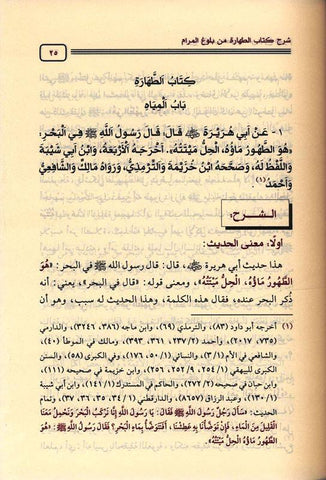 شرح كتاب الطهارة من بلوغ المرام
٢٥
كِتَابُ الطَّهَارَةِ
بَابُ الْمِيَاهِ
١ - عَنْ أَبِي هُرَيْرَةَ ﷺ قَالَ: قَالَ رَسُولُ اللَّهِ ﷺ فِي الْبَحْرِ:
«هُوَ الطَّهُورُ مَاؤُهُ، الْحِلُّ مَيْتَتُهُ». أَخْرَجَهُ الْأَرْبَعَةُ، وَابْنُ أَبِي شَيْبَةَ
وَاللَّفْظُ لَهُ، وَصَحَّحَهُ ابْنُ خُزَيْمَةَ وَالتِّرْمِذِيُّ، وَرَوَاهُ مَالِكٌ وَالشَّافِعِيُّ
وَأَحْمَدُ(١)
الشرح:
أولًا: معنى الحديث:
هذا حديث أبي هريرة ، قال: قال رسول الله ﷺ في البحر: «هُوَ
الطَّهُورُ مَاؤُهُ، الْحِلُّ مَيْتَتُهُ»، ومعنى قوله: «قال في البحر»، يعني: أنه
ذُكِر البحر عنده؛ فقال هذه الكلمة، وهذا الحديث له سبب، وهو أن
(١) أخرجه أبو داود (٨٣)، والترمذي (٦٩)، وابن ماجه (٣٨٦، ٣٢٤٦)، والدارمي
(٧٣٥، ٢٠١٧)، وأحمد (٢/ ٢٣٧، ٣٦١، ٣٩٣)، ومالك في الموطأ (٤٠)،
والشافعي في الأم (٣/١)، والنسائي (١/ ٥٠، ١٧٦)، وفي الكبرى (٥٨)، والسنن
الكبرى للبيهقي (١/ ٢٥٤، ٩/ ٢٥٢، ٢٥٦)، وابن خزيمة في صحيحه (١١١)،
وابن حبان في صحيحه (٢٧٢/٢)، والحاكم في المستدرك (١/ ١٤١)، وابن أبي شيبة
(١/ ١٣٠)، وعبد الرزاق (٨٦٥٧)، والدارقطني (١/ ٣٤، ٣٥، ٣٦، ٣٧)، وتمام
الحديث: «سَأَلَ رَجُلٌ رَسُولَ اللَّهِ ﷺ فَقَالَ: يَا رَسُولَ اللَّهِ إِنَّا نَرْكَبُ الْبَحْرَ وَنَحْمِلُ مَعَنَا
الْقَلِيلَ مِنَ الْمَاءِ، فَإِنْ تَوَضَّأْنَا بِهِ عَطِشْنَا، أَفَنَتَوَضَّأُ بِمَاءِ الْبَحْرِ؟ فَقَالَ رَسُولُ اللَّهِ ﷺ:
هُوَ الطَّهُورُ مَاؤُهُ الْحِلُّ مَيْتَتُهُ».